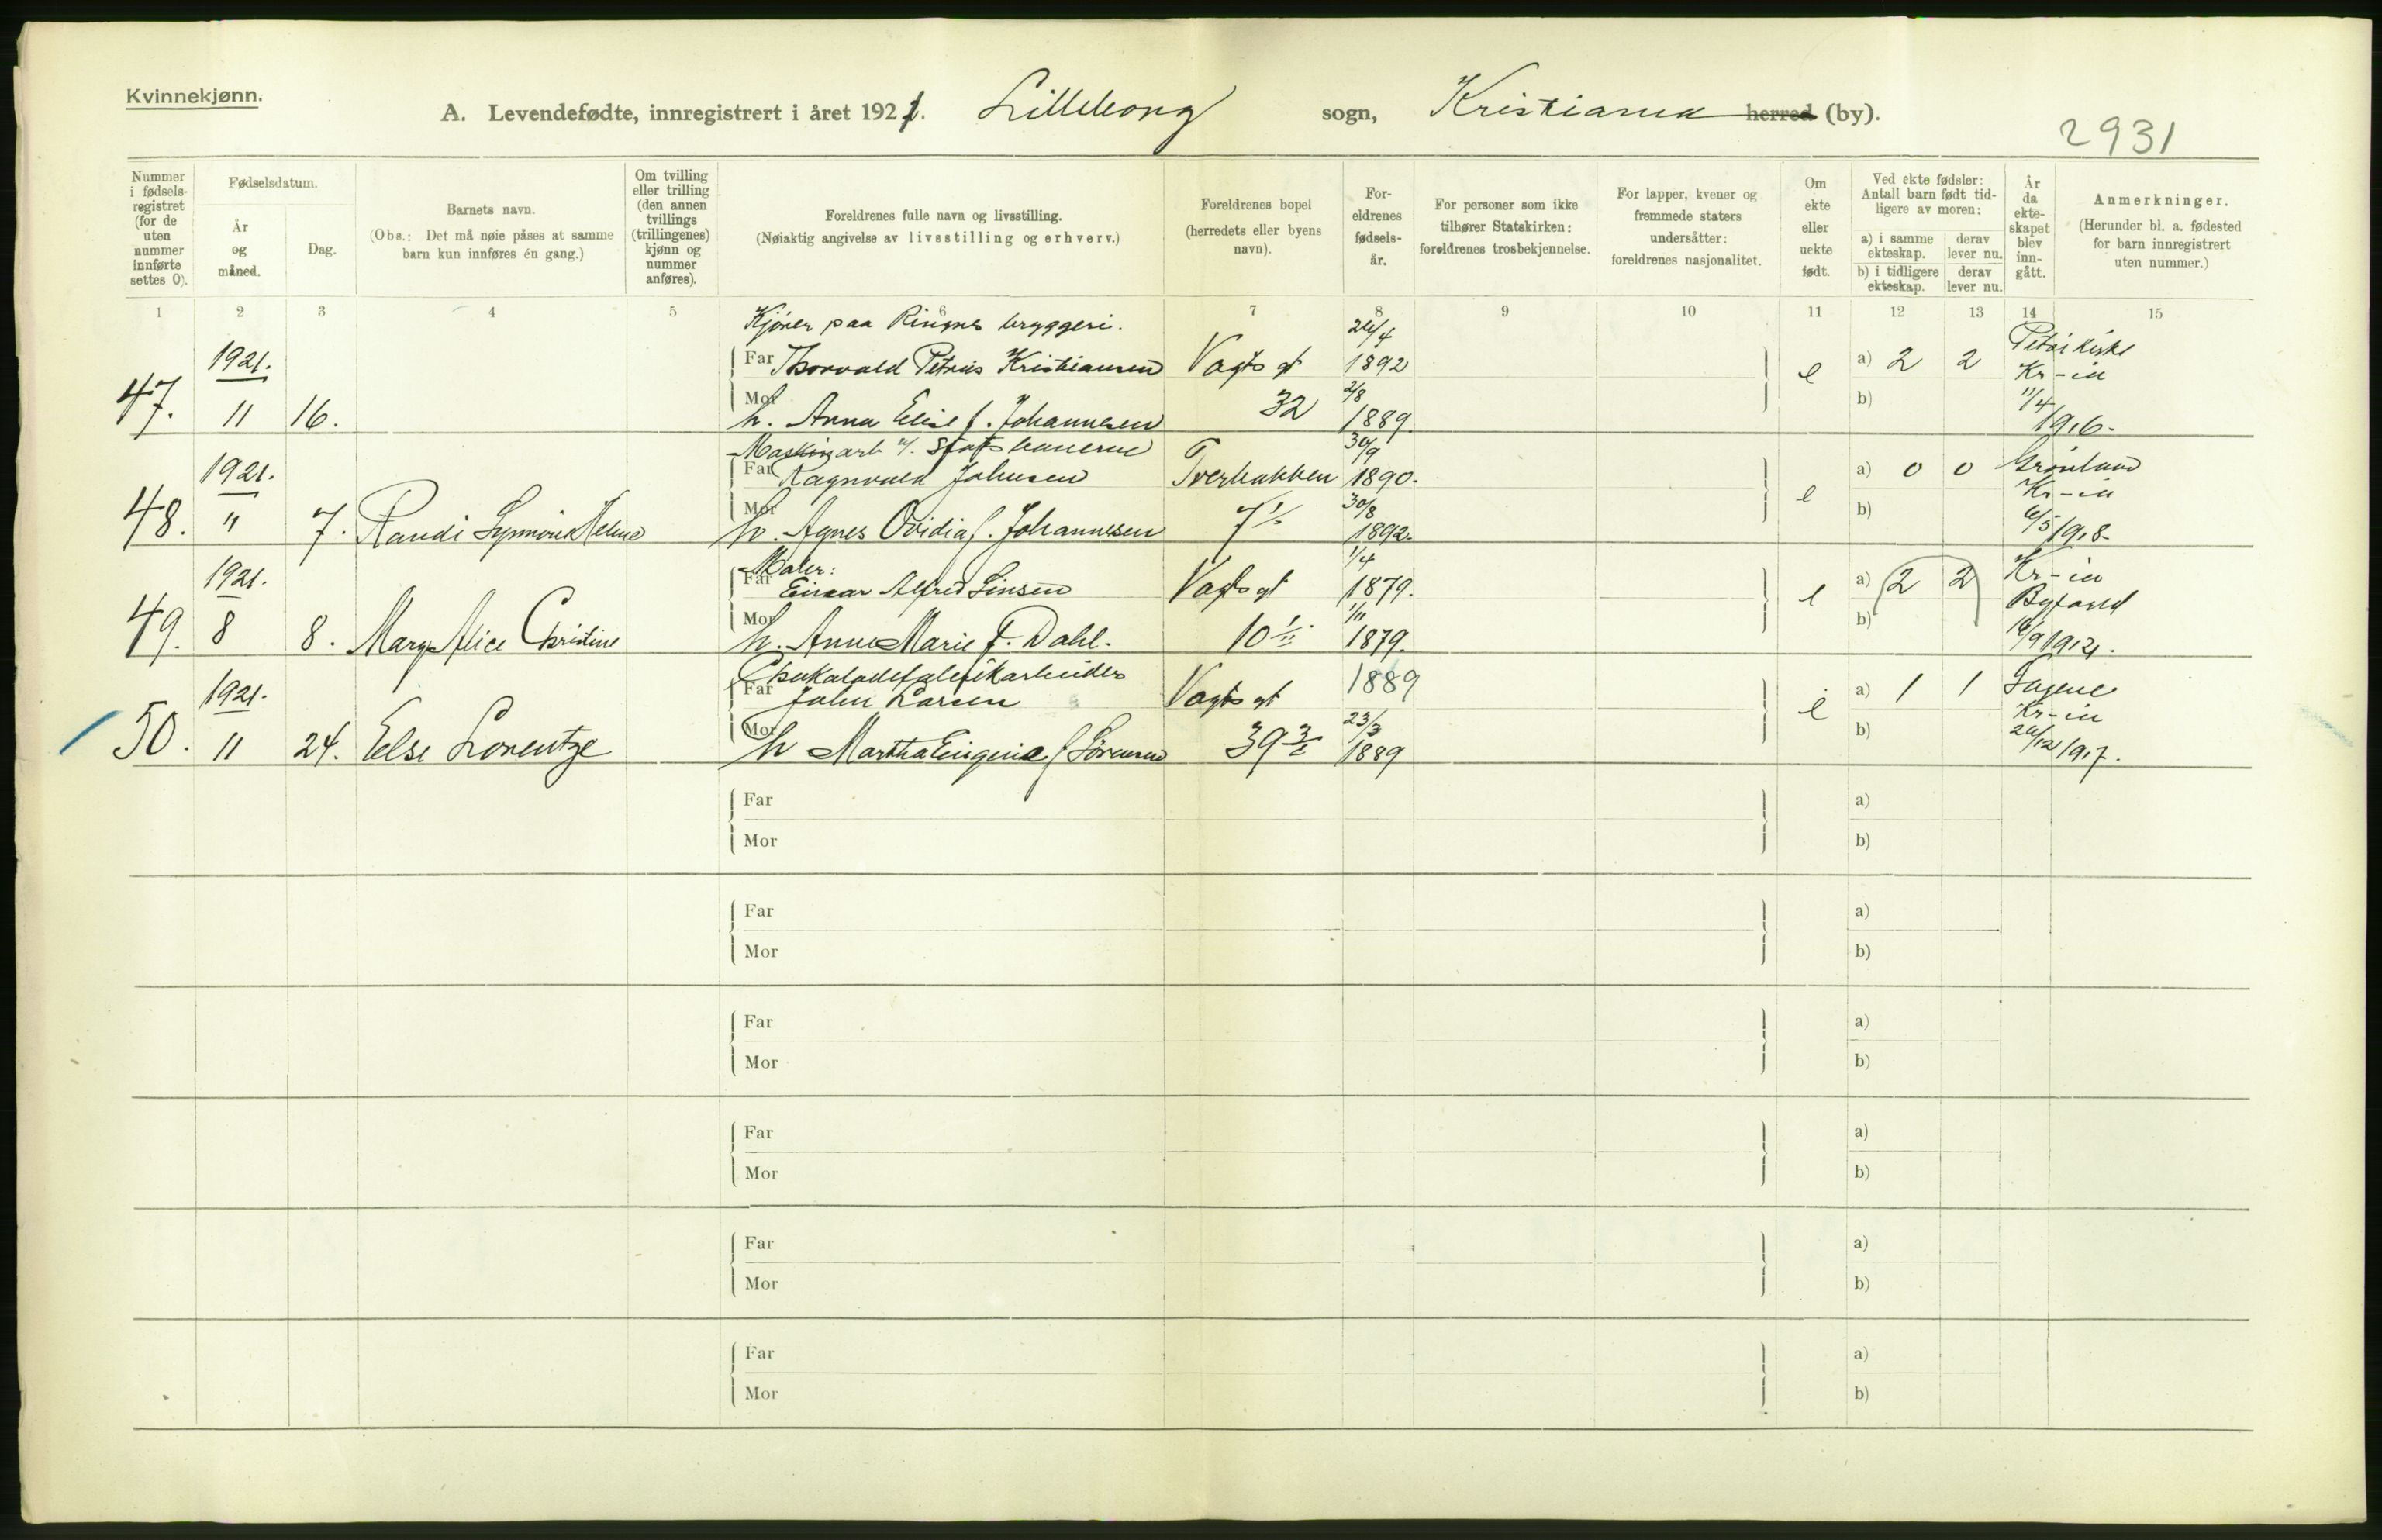 Kvinnekjønn.
A. Levendefødte, innregistrert i året 1921. Lilleborg sogn, Kristiania herred (by).
2931
Nummer i fødsels-registret (for de uten nummer innførte settes 0).
Fødselsdatum.
År og måned.
Dag.
Barnets navn.
(Obs.: Det må nøie påses at samme barn kun innføres én gang.)
Om tvilling eller trilling (den annen tvillings (trillingenes) kjønn og nummer anføres).
Foreldrenes fulle navn og livsstilling.
(Nøiaktig angivelse av livsstilling og erhverv.)
Foreldrenes bopel (herredets eller byens navn).
For-eldrenes fødsels-år.
For personer som ikke tilhører Statskirken: foreldrenes trosbekjennelse.
For lapper, kvener og fremmede staters undersåtter: foreldrenes nasjonalitet.
Om ekte eller uekte født.
Ved ekte fødsler: Antall barn født tid-ligere av moren:
a) i samme ekteskap.
derav lever nu.
b) i tidligere ekteskap.
derav lever nu.
År da ekte-skapet blev inn-gått.
Anmerkninger.
(Herunder bl. a. fødested for barn innregistrert uten nummer.)
1 2 3 4 5 6 7 8 9 10 11 12 13 14 15
Kjører paa Ringnes bryggeri. 24/4
1921. Far Thorvald Petrus Kristiansen Vogts gt 1892 e a) 2 2 Petri kirke Kr-ia
47. 11 16. Mor h. Anna Elise f. Johannesen 32 2/8 1889 b) 11/4 1916.
Maskinarb v. Statsbanerne 30/9
1921. Far Ragnvald Johnsen Tverbakken 1890. e a) 0 0 Grønland Kr-ia
48. " 7. Randi Synnöve Helene Mor h. Agnes Ovidia f. Johannesen 7 I 30/8 1892. b) 6/5 1918.
Maler: 1/4
1921. Far Einar Alfred Linsen Vogts gt 1879. e a) 2 2 Kr-ia Byfogd
49. 8 8. Mary Alice Christine Mor h. Anne Marie f. Dahl. 10 II 1/11 1879. b) 19121.
Chokoladefabrikarbeider
1921. Far John Larsen Vogts gt 1889 e a) 1 1 Sagene Kr-ia
50. 11 24. Else Lorentze Mor h Martha Eugenie f Sørensen 39 3/ 23/3 1889 b) /12 1917.
Far a)
Mor b)
Far a)
Mor b)
Far a)
Mor b)
Far a)
Mor b)
Far a)
Mor b)
Far a)
Mor b)